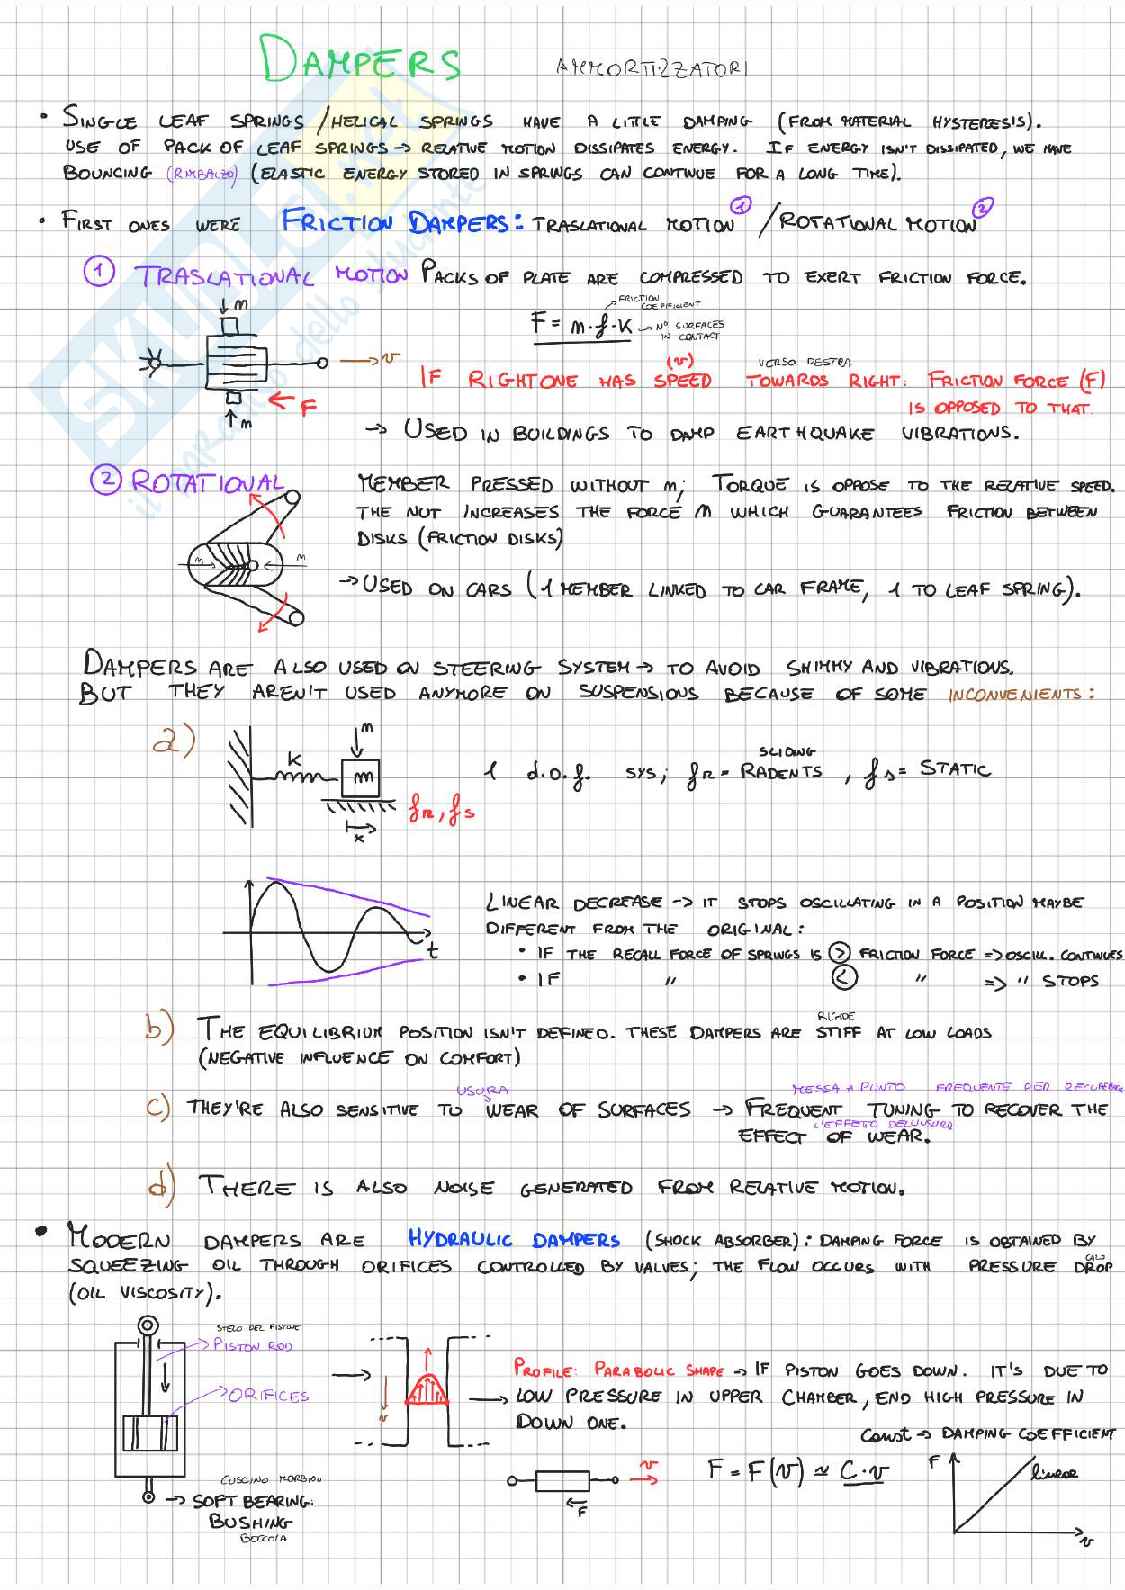 DAMPERS AMMORTIZZATORI
• SINGLE LEAF SPRINGS / HELICAL SPRINGS HAVE A LITTLE DAMPING (FROM MATERIAL HYSTERESIS).
USE OF PACK OF LEAF SPRINGS → RELATIVE MOTION DISSIPATES ENERGY. IF ENERGY ISN'T DISSIPATED, WE HAVE
BOUNCING (RIMBALZO) (ELASTIC ENERGY STORED IN SPRINGS CAN CONTINUE FOR A LONG TIME).
• FIRST ONES WERE FRICTION DAMPERS: TRASLATIONAL MOTION ① / ROTATIONAL MOTION ②
① TRASLATIONAL MOTION PACKS OF PLATE ARE COMPRESSED TO EXERT FRICTION FORCE.
m
FRICTION
COEFFICIENT
F = m·f·K
N° SURFACES
IN CONTACT
v
(v) VERSO DESTRA
IF RIGHT ONE HAS SPEED TOWARDS RIGHT: FRICTION FORCE (F)
F
IS OPPOSED TO THAT.
m
→ USED IN BUILDINGS TO DAMP EARTHQUAKE VIBRATIONS.
② ROTATIONAL
MEMBER PRESSED WITHOUT m; TORQUE IS OPPOSE TO THE RELATIVE SPEED.
THE NUT INCREASES THE FORCE m WHICH GUARANTEES FRICTION BETWEEN
DISKS (FRICTION DISKS)
m m
→ USED ON CARS (1 MEMBER LINKED TO CAR FRAME, 1 TO LEAF SPRING).
DAMPERS ARE ALSO USED ON STEERING SYSTEM → TO AVOID SHIMMY AND VIBRATIONS.
BUT THEY AREN'T USED ANYMORE ON SUSPENSIONS BECAUSE OF SOME INCONVENIENTS:
a)
m
K
m
SLIDING
1 d.o.f. SYS; fR = RADENTS, fs = STATIC
fR, fs
x
LINEAR DECREASE → IT STOPS OSCILLATING IN A POSITION MAYBE
DIFFERENT FROM THE ORIGINAL:
t
• IF THE RECALL FORCE OF SPRINGS IS > FRICTION FORCE => OSCILL. CONTINUES
• IF " < " => " STOPS
RIGIDE
b) THE EQUILIBRIUM POSITION ISN'T DEFINED. THESE DAMPERS ARE STIFF AT LOW LOADS
(NEGATIVE INFLUENCE ON COMFORT)
USURA MESSA A PUNTO FREQUENTE PER RECUPERARE
c) THEY'RE ALSO SENSITIVE TO WEAR OF SURFACES → FREQUENT TUNING TO RECOVER THE
L'EFFETTO DELL'USURA
EFFECT OF WEAR.
d) THERE IS ALSO NOISE GENERATED FROM RELATIVE MOTION.
• MODERN DAMPERS ARE HYDRAULIC DAMPERS (SHOCK ABSORBER): DAMPING FORCE IS OBTAINED BY
SQUEEZING OIL THROUGH ORIFICES CONTROLLED BY VALVES; THE FLOW OCCURS WITH PRESSURE DROP
CALO
(OIL VISCOSITY).
STELO DEL PISTONE
PISTON ROD
ORIFICES
v
PROFILE: PARABOLIC SHAPE → IF PISTON GOES DOWN. IT'S DUE TO
LOW PRESSURE IN UPPER CHAMBER, END HIGH PRESSURE IN
DOWN ONE.
Const → DAMPING COEFFICIENT
CUSCINO MORBIDO
→ SOFT BEARING:
BUSHING
BOCCOLA
v
F
F = F(v) ≃ C·v
F
linear
v